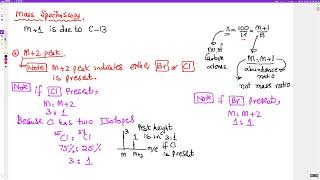 Mass Spectroscopy,
m+1 is due to C-13
n = 100/1.1 × m+1/m
no. of Carbon atoms.
m : m+1
abundance ratio
not mass ratio
M+2 peak.
Note M+2 peak indicates either Br or Cl is present.
Note if Cl Present,
M : M+2
3 : 1
Because Cl has two Isotopes
35Cl : 37Cl
75% : 25%
3 : 1
3
1
M M+2 m/e
Peak height is in 3:1 if Cl is present
Note if Br Present,
M : M+2
1 : 1